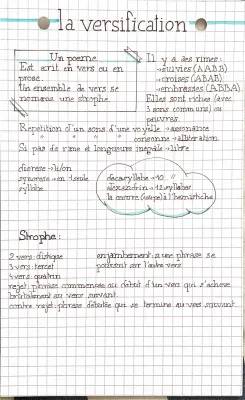 la versification
Un poeme
Est ecrit en vers ou en
prose.
Un ensemble de vers se
nomme une strophe.
Il y a des rimes:
→suivies (AABB)
→croises (ABAB)
→embrasses (ABBA)
Elles sont riches (avec
3 sons communs) ou
pauvres.
Repetition d'un sons d'une voyelle →assonance
" " " " consonne →alliteration
Si pas de rime et longueurs inegale →libre
dierese →li/on
synerese →en 1 seule
syllabe
decasyllabe →10 "
alexandrin →12 syllabes
la cesure (coupe) à l'hemistiche
Strophe:
2 vers: distique
3 vers: tercet
4 vers: quatrin
enjambement: a une phrase se
poursuit sur l'autre vers
rejet: phrase commencee au début d'un vers qui s'acheve
brutalement au vers suivant.
contre rejet: phrase débutée qui se termine au vers suivant.